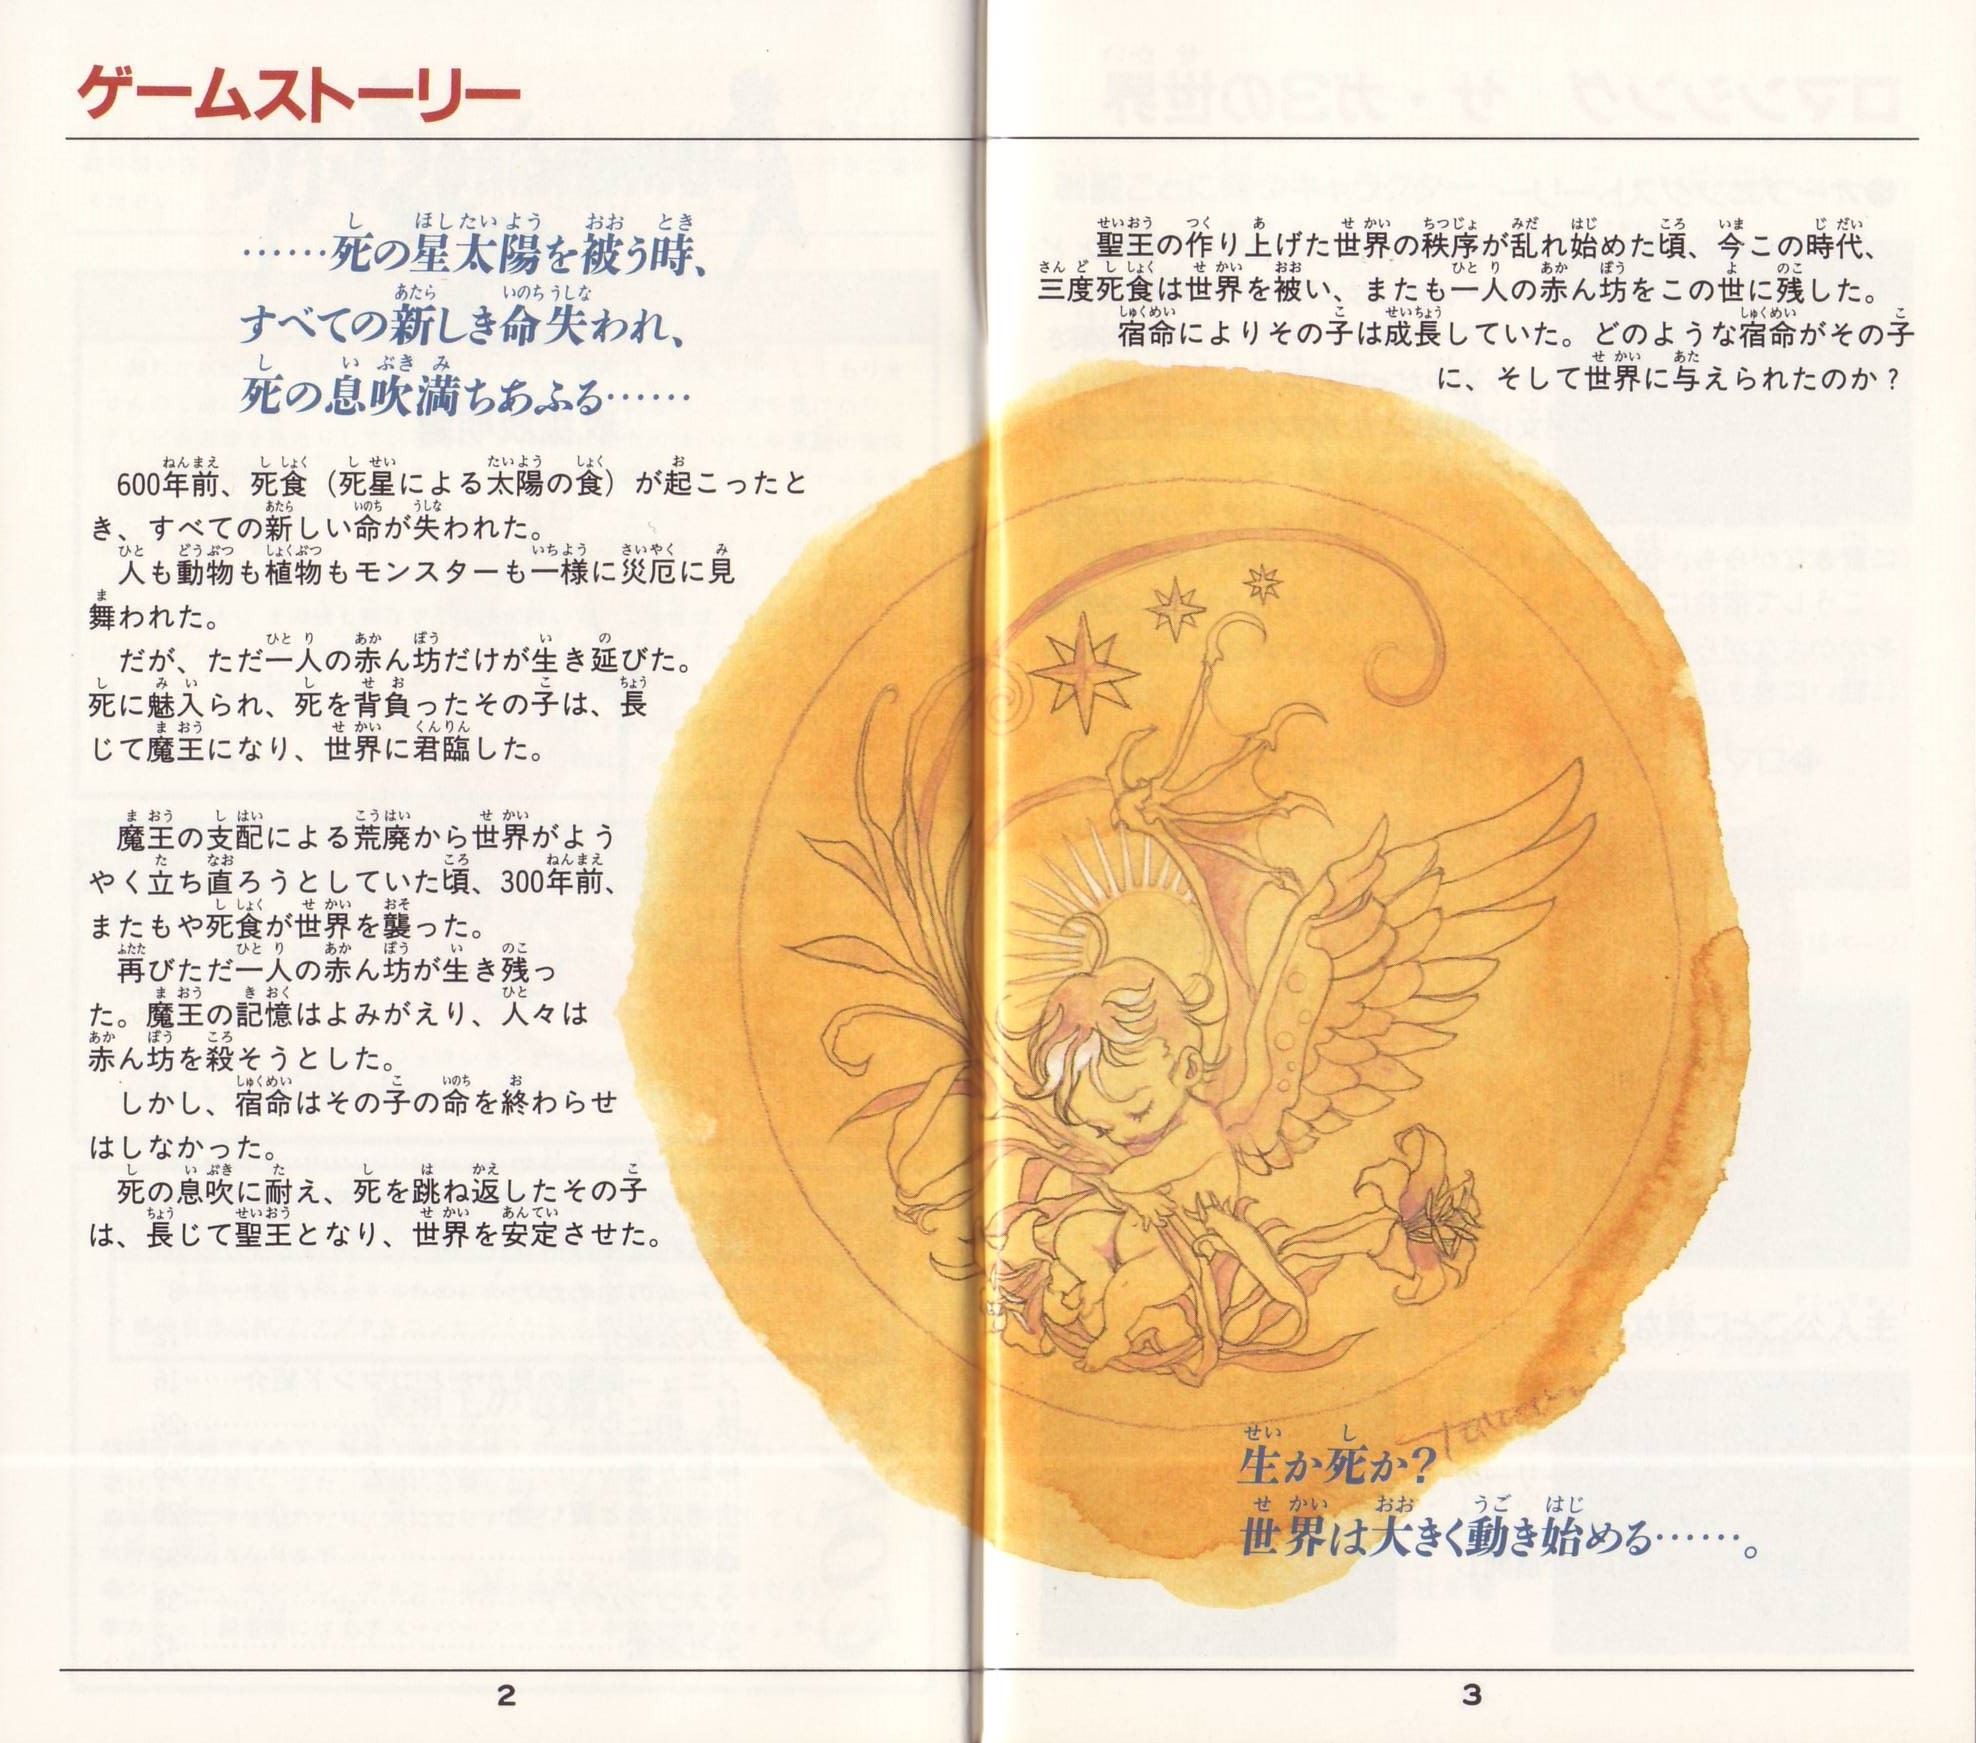 ゲームストーリー
……死の星太陽を被う時、
すべての新しき命失われ、
死の息吹満ちあふる……
600年前、死食（死星による太陽の食）が起こったと
き、すべての新しい命が失われた。
人も動物も植物もモンスターも一様に災厄に見
舞われた。
だが、ただ一人の赤ん坊だけが生き延びた。
死に魅入られ、死を背負ったその子は、長
じて魔王になり、世界に君臨した。
魔王の支配による荒廃から世界がよう
やく立ち直ろうとしていた頃、300年前、
またもや死食が世界を襲った。
再びただ一人の赤ん坊が生き残っ
た。魔王の記憶はよみがえり、人々は
赤ん坊を殺そうとした。
しかし、宿命はその子の命を終わらせ
はしなかった。
死の息吹に耐え、死を跳ね返したその子
は、長じて聖王となり、世界を安定させた。
2
聖王の作り上げた世界の秩序が乱れ始めた頃、今この時代、
三度死食は世界を被い、またも一人の赤ん坊をこの世に残した。
宿命によりその子は成長していた。どのような宿命がその子
に、そして世界に与えられたのか？
生か死か？
世界は大きく動き始める……。
3